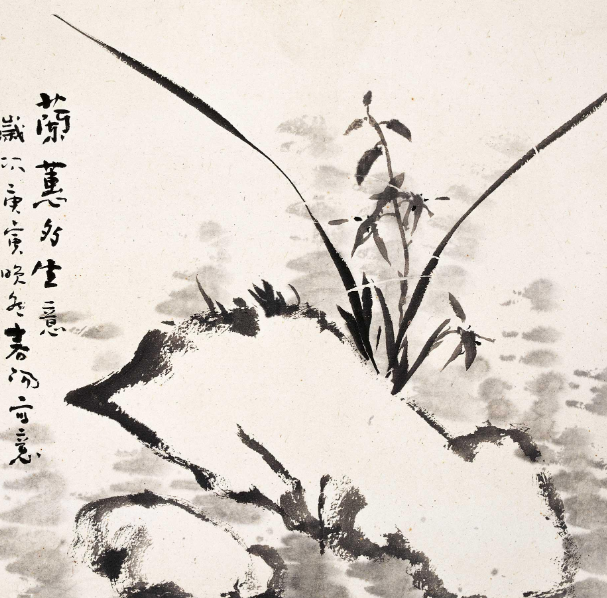 蘭蕙多生意
歲次庚寅晚冬春陽寫意